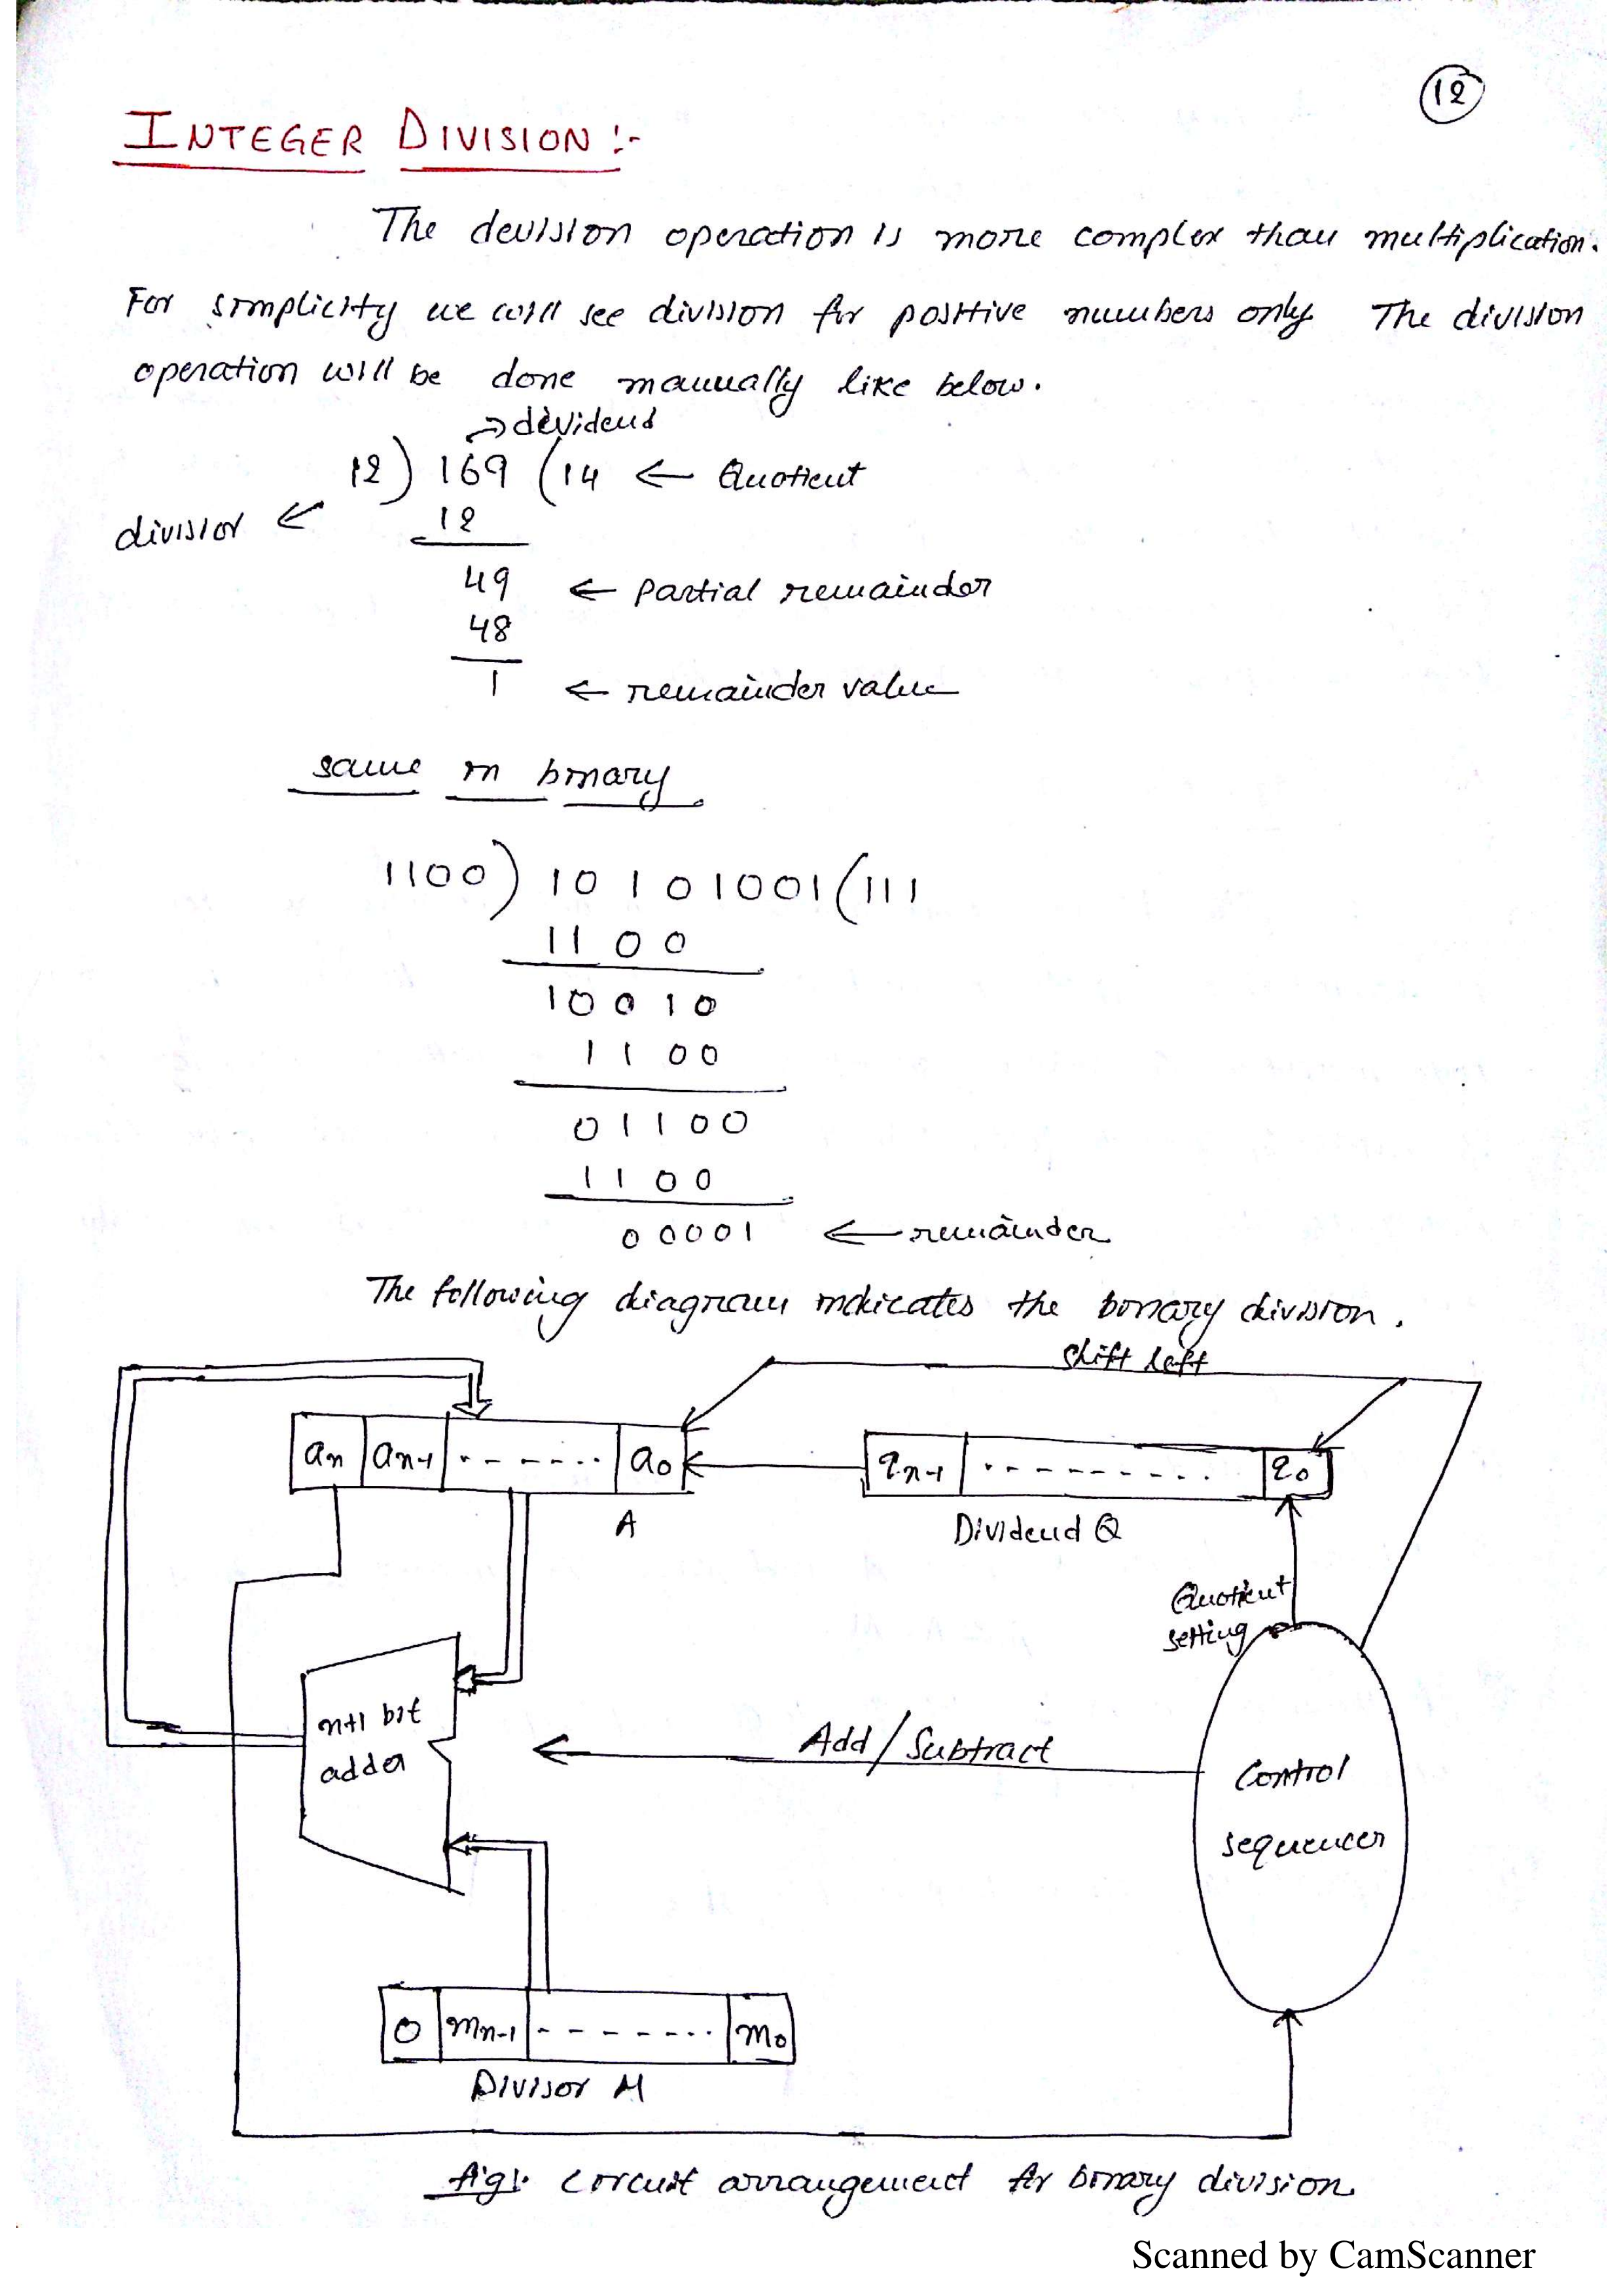 12
INTEGER DIVISION :-
The devision operation is more complex than multiplication.
For simplicity we will see division for positive numbers only. The division
operation will be done manually like below.
→ dividend
12 ) 169 ( 14 ← Quotient
division ←
12
49 ← partial remainder
48
1 ← remainder value
same in binary
1100 ) 10101001 ( 111
1100
10010
1100
01100
1100
00001 ← remainder
The following diagram indicates the binary division.
shift left
an an-1 - - - - - - a0
qn-1 - - - - - - - - q0
A
Dividend Q
Quotient
setting
n+1 bit
adder
Add / Subtract
Control
sequencer
0 mn-1 - - - - - - - m0
Divisor M
fig: circuit arrangement for binary division.
Scanned by CamScanner